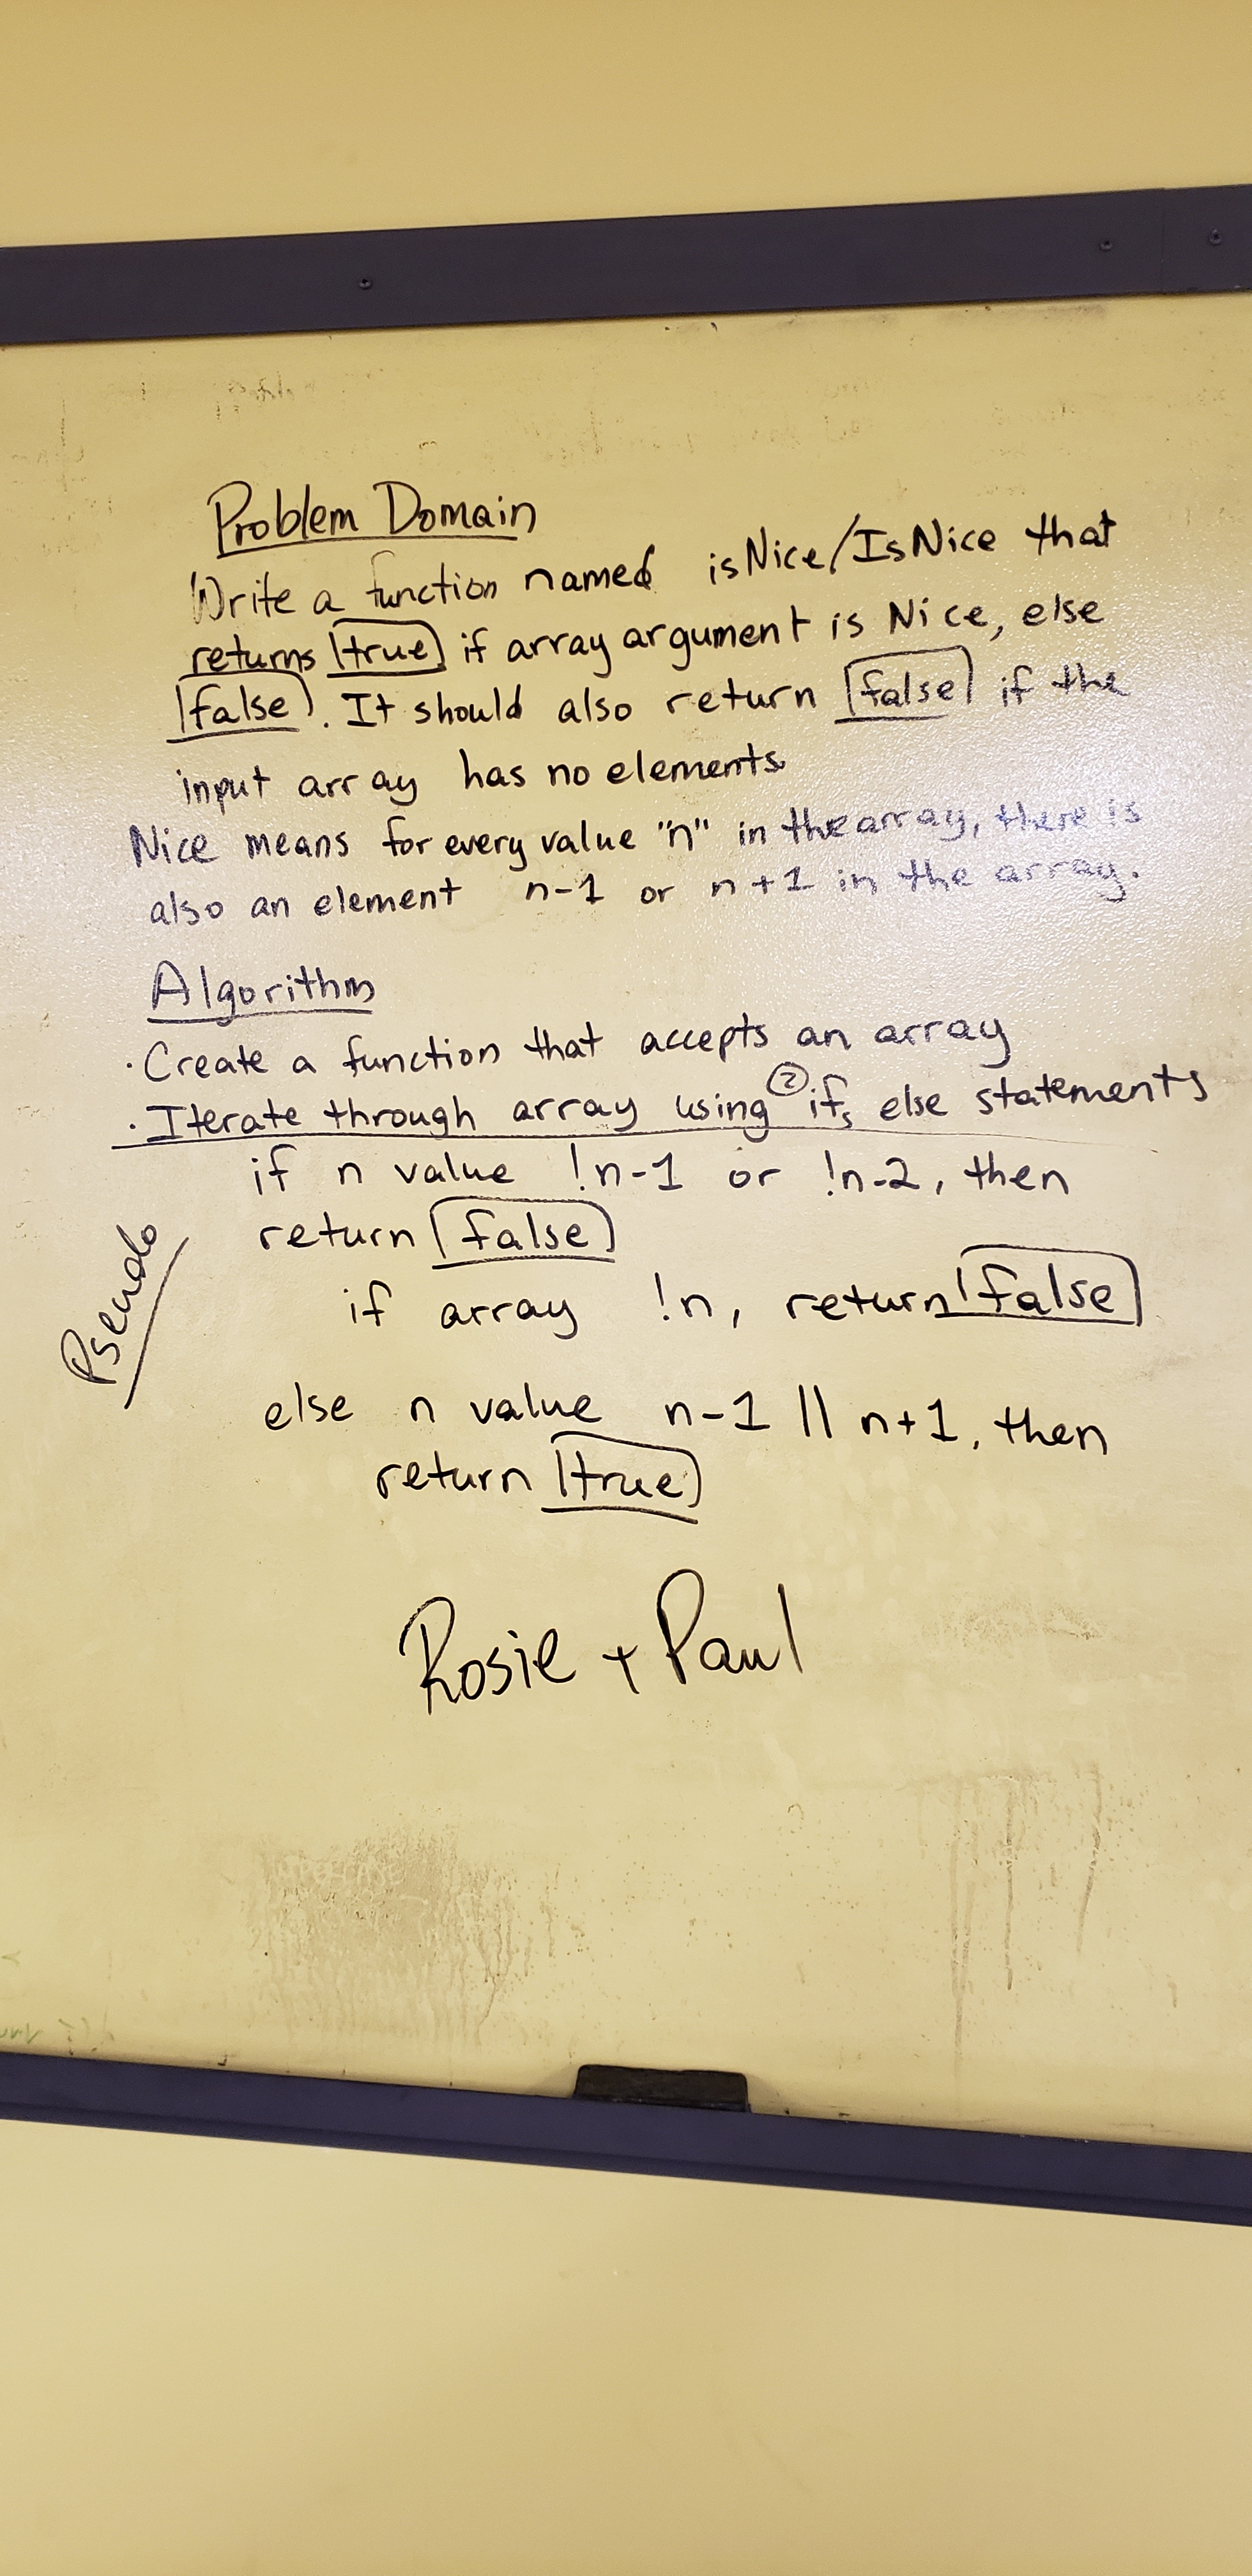 Problem Domain
Write a function named isNice/IsNice that
returns true if array argument is Nice, else
false. It should also return false if the
input array has no elements.
Nice means for every value "n" in the array, there is
also an element n-1 or n+1 in the array.
Algorithm
· Create a function that accepts an array
· Iterate through array using ② ifs, else statements
if n value !n-1 or !n-2, then
return false
Pseudo
if array !n, return false
else n value n-1 || n+1, then
return true
Rosie + Paul